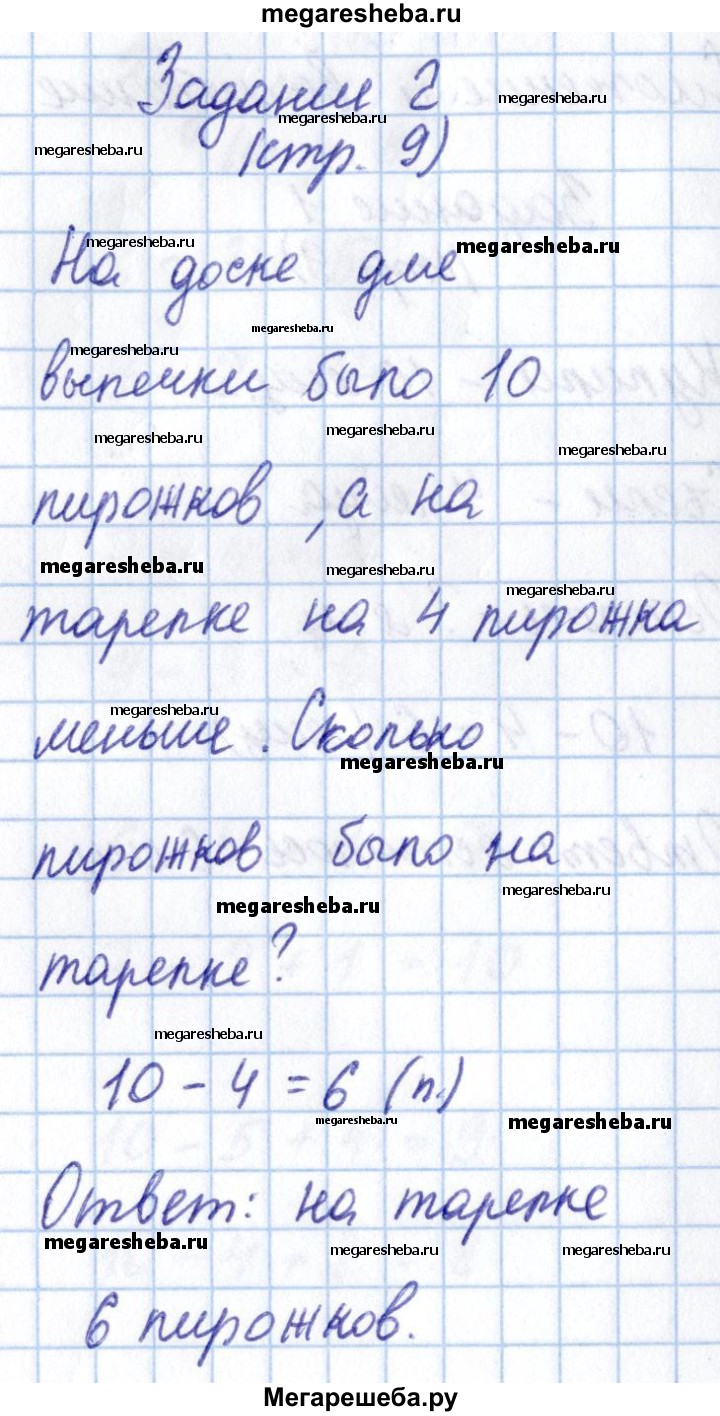 megaresheba.ru
Задание 2
megaresheba.ru
megaresheba.ru
megaresheba.ru
(стр. 9)
megaresheba.ru
megaresheba.ru
На доске для
megaresheba.ru
megaresheba.ru
выпечки было 10
megaresheba.ru
megaresheba.ru
megaresheba.ru
пирожков, а на
megaresheba.ru
megaresheba.ru
megaresheba.ru
тарелке на 4 пирожка
megaresheba.ru
меньше. Сколько
megaresheba.ru
пирожков было на
megaresheba.ru
megaresheba.ru
тарелке?
megaresheba.ru
10 - 4 = 6 (п.)
megaresheba.ru
megaresheba.ru
Ответ: на тарелке
megaresheba.ru
megaresheba.ru
megaresheba.ru
6 пирожков.
Мегарешеба.ру